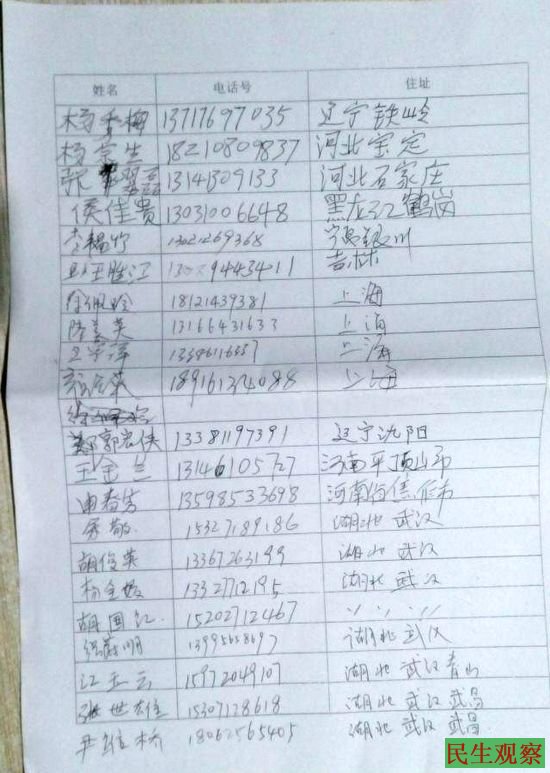 姓名 电话号 住址
杨秀梅 13717697035 辽宁铁岭
杨宗生 18210809837 河北保定
张 13141309133 河北石家庄
侯佳贵 13031006648 黑龙江鹤岗
李 13021269368 宁夏银川
王胜江 94434011 吉林
徐佩玲 18121439381 上海
陆 英 13166431633 上海
上海
18916134088 上海
郭宏侠 13381197391 辽宁沈阳
王金兰 13146105727 河南平顶山市
13598533698 河南省焦作市
敏 15327189186 湖北 武汉
胡俊英 13367263199 湖北 武汉
杨金 13327712195 湖北 武汉
胡国江 15202712467 〃 〃 〃
明 湖北 武汉
江玉云 15972049107 湖北 武汉青山
张世雄 15307128618 湖北 武汉武昌
尹 桥 18062565405 湖北 武汉 武昌
民生观察